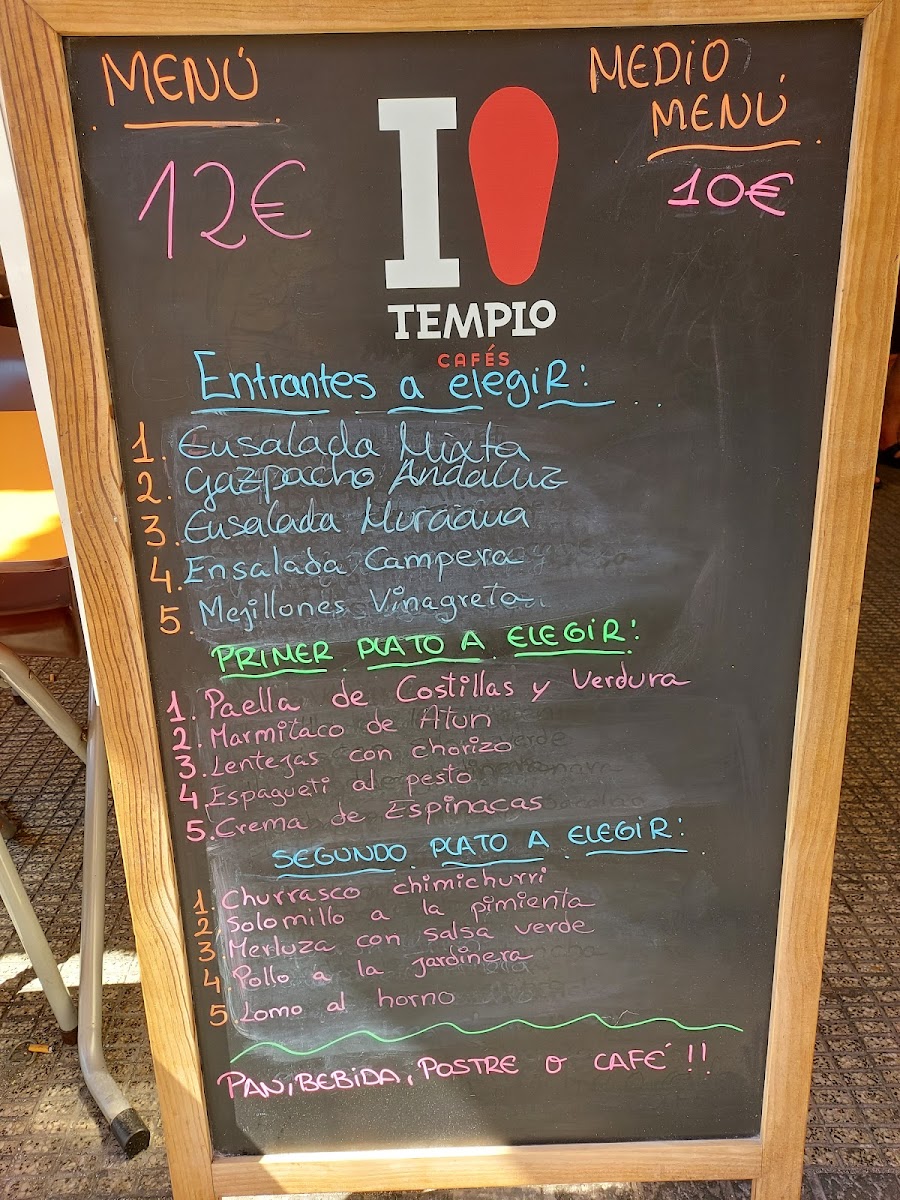 MENÚ
12€
MEDIO
MENÚ
10€
I
TEMPLO
CAFÉS
Entrantes a elegiR:
1. Ensalada Mixta
2. Gazpacho Andaluz
3. Ensalada Murciana
4. Ensalada Campera
5. Mejillones Vinagreta
PRIMER PLATO A ELEGIR:
1. Paella de Costillas y Verdura
2. Marmitaco de Atun
3. Lentejas con chorizo
4. Espagueti al pesto
5. Crema de Espinacas
SEGUNDO PLATO A ELEGIR:
1. Churrasco chimichurri
2. Solomillo a la pimienta
3. Merluza con salsa verde
4. Pollo a la jardinera
5 Lomo al horno
PAN, BEBIDA, POSTRE O CAFÉ!!